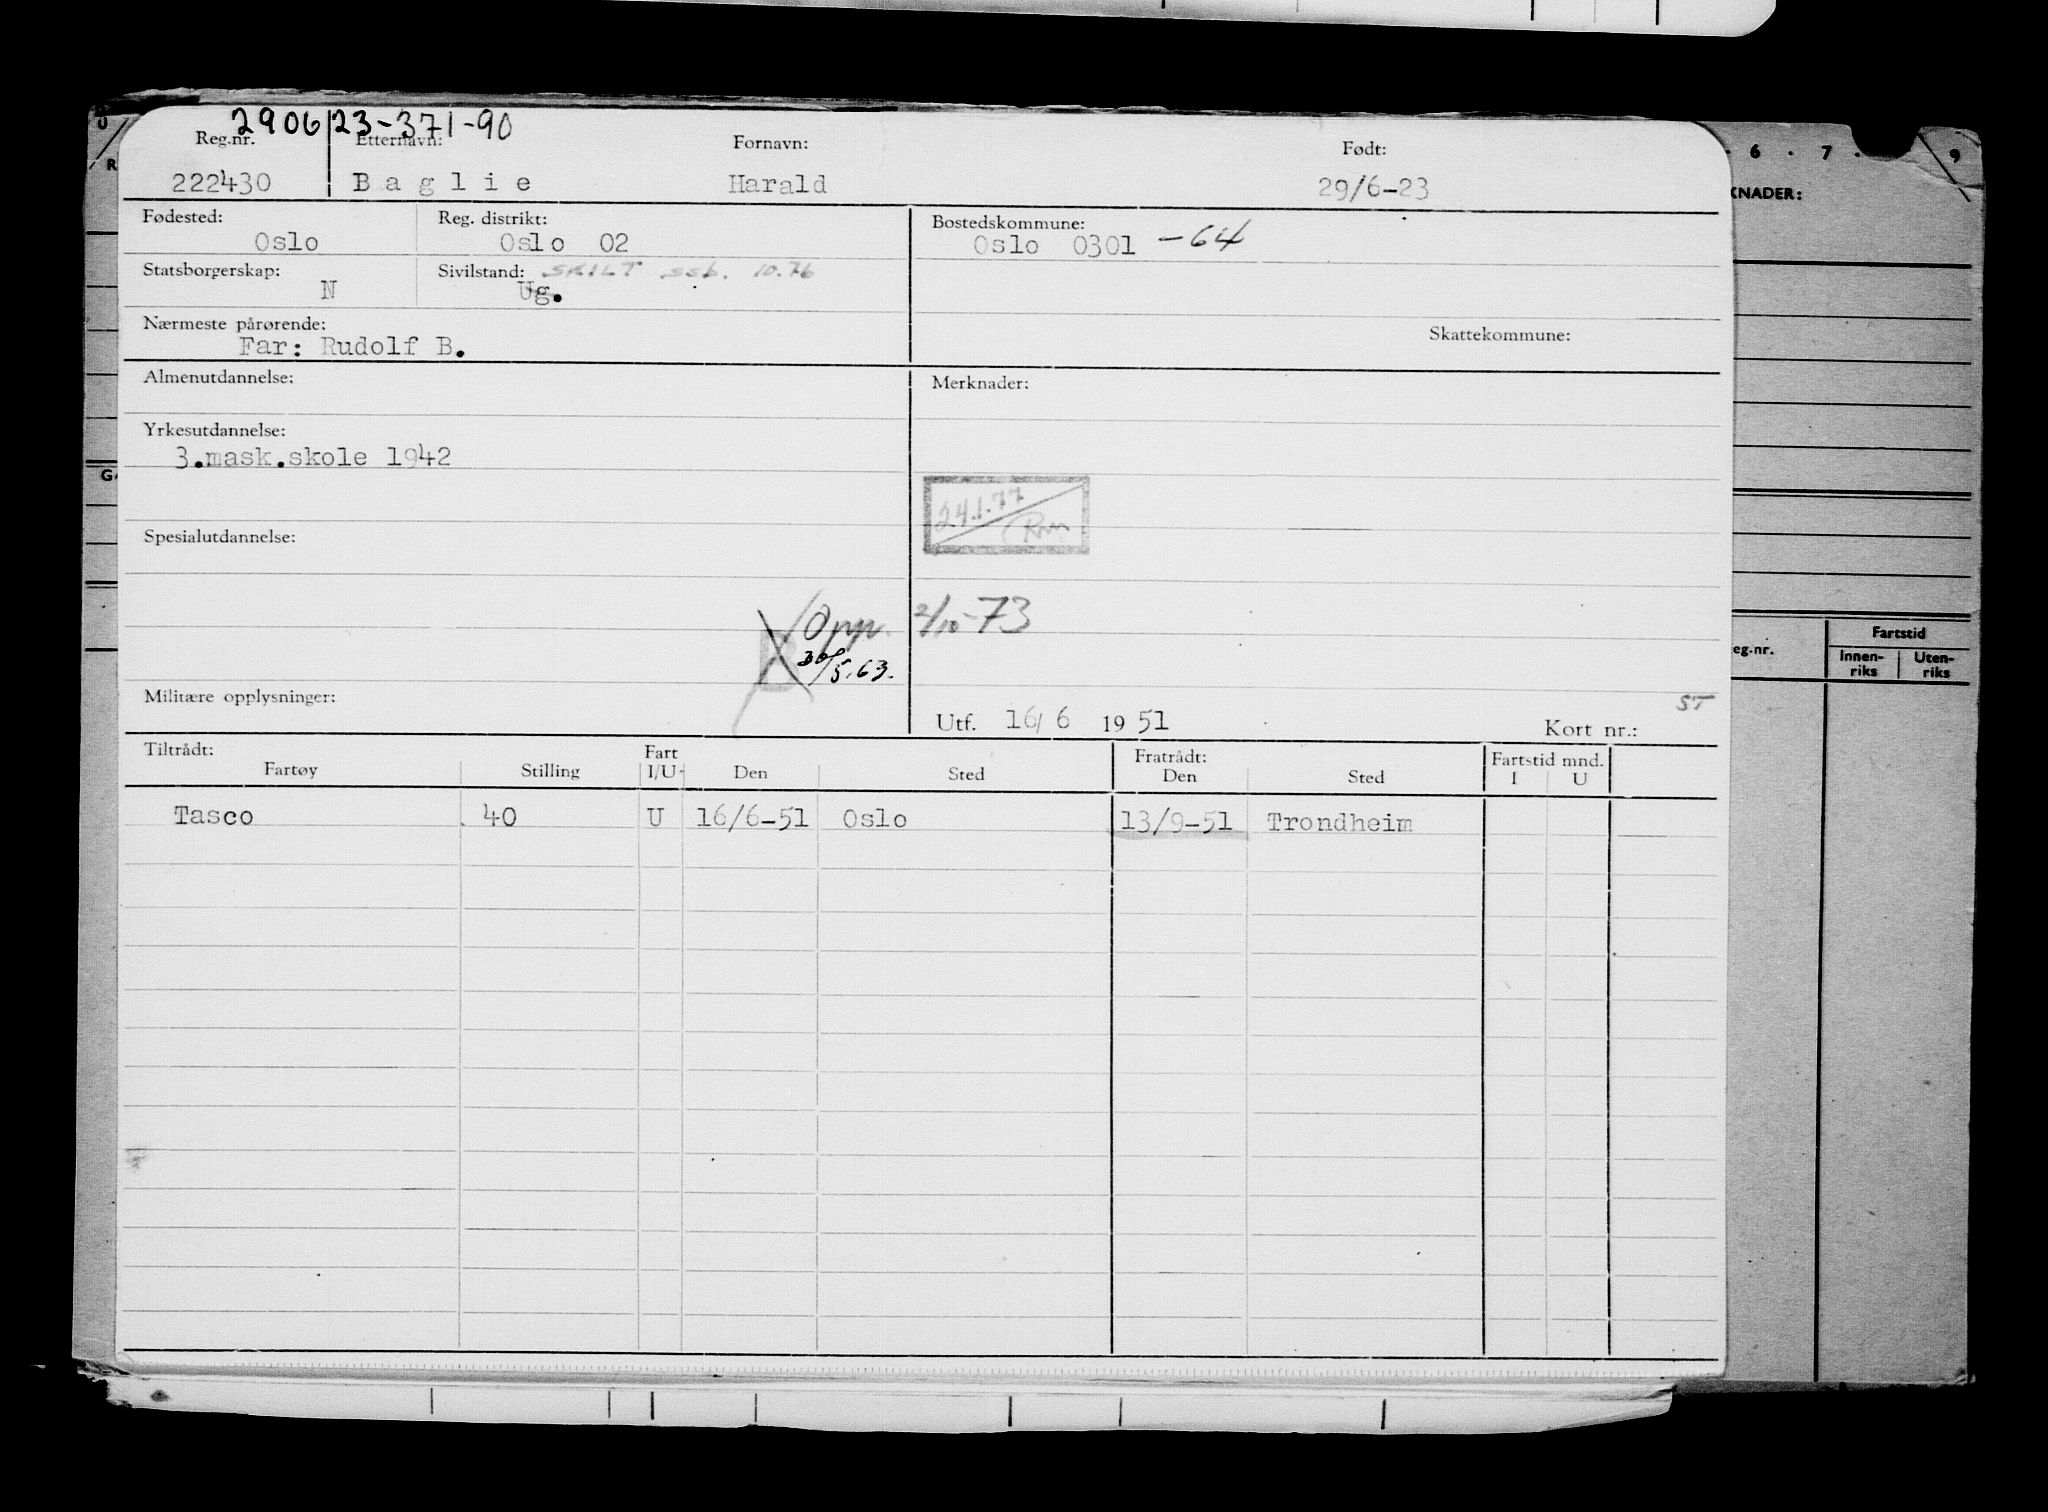 290623-371-90
Reg.nr. Etternavn: Fornavn: Født:
222430 Baglie Harald 29/6-23
Fødested: Reg. distrikt: Bostedskommune:
Oslo Oslo 02 Oslo 0301 -64
Statsborgerskap: Sivilstand: SKILT ssb. 10.76
N Ug.
Nærmeste pårørende: Skattekommune:
Far: Rudolf B.
Almenutdannelse: Merknader:
Yrkesutdannelse:
3.mask.skole 1942
24.1.77
Spesialutdannelse:
Opp. 2/10-73
30/5.63.
Militære opplysninger: ST
Utf. 16/ 6 19 51 Kort nr.:
Tiltrådt: Fart Fratrådt: Fartstid mnd.
Fartøy Stilling I/U Den Sted Den Sted I U
Tasco 40 U 16/6-51 Oslo 13/9-51 Trondheim
6 . 7 . 9
KNADER:
eg.nr. Fartstid
Innen-riks Uten-riks